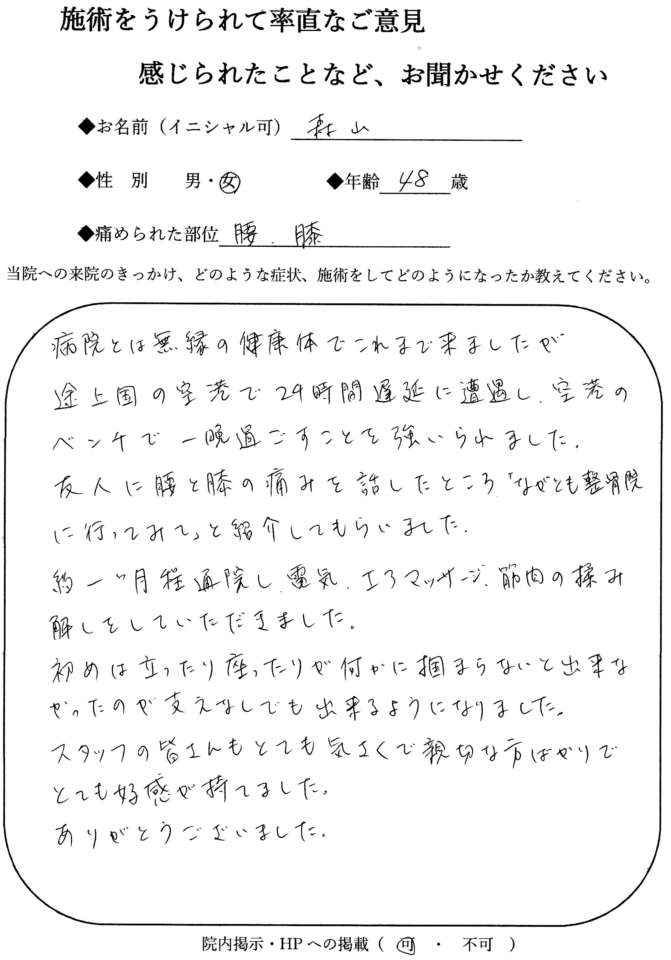 施術をうけられて率直なご意見
感じられたことなど、お聞かせください
◆お名前（イニシャル可） 森山
◆性　別　　男・女　　◆年齢 48 歳
◆痛められた部位 腰、膝
当院への来院のきっかけ、どのような症状、施術をしてどのようになったか教えてください。
病院とは無縁の健康体でこれまで来ましたが
途上国の空港で24時間遅延に遭遇し、空港の
ベンチで一晩過ごすことを強いられました。
友人に腰と膝の痛みを話したところ「ながとも整骨院
に行ってみて」と紹介してもらいました。
約一ヶ月程通院し、電気、エアマッサージ、筋肉の揉み
解しをしていただきました。
初めは立ったり座ったりが何かに掴まらないと出来な
かったのが支えなしでも出来るようになりました。
スタッフの皆さんもとても気さくで親切な方ばかりで
とても好感が持てました。
ありがとうございました。
院内掲示・HPへの掲載（ 可 ・ 不可 ）